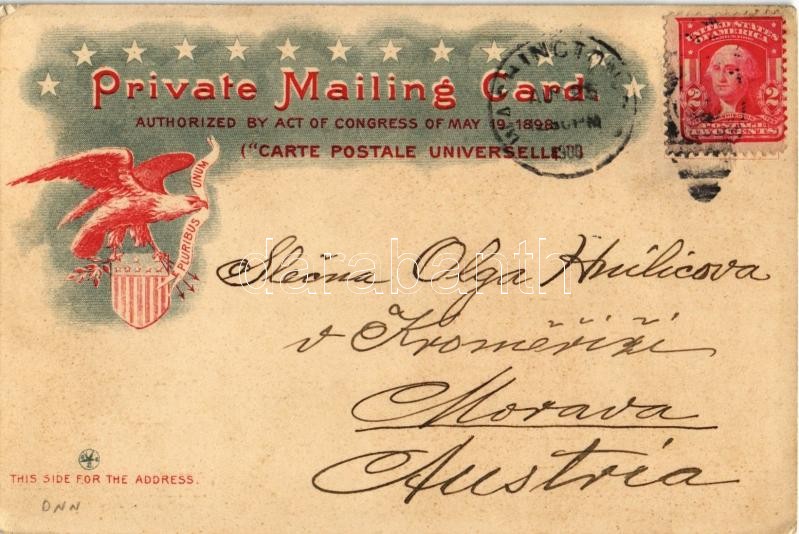 Private Mailing Card.
AUTHORIZED BY ACT OF CONGRESS OF MAY 19-1898.
("CARTE POSTALE UNIVERSELLE
E PLURIBUS UNUM
WASHINGTON
1908
UNITED STATES
OF AMERICA
2 2
POSTAGE
TWO CENTS
Slečna Olga Hnilicova
v Kroměřiži
Morava
Austria
darabanth
THIS SIDE FOR THE ADDRESS.
DNN